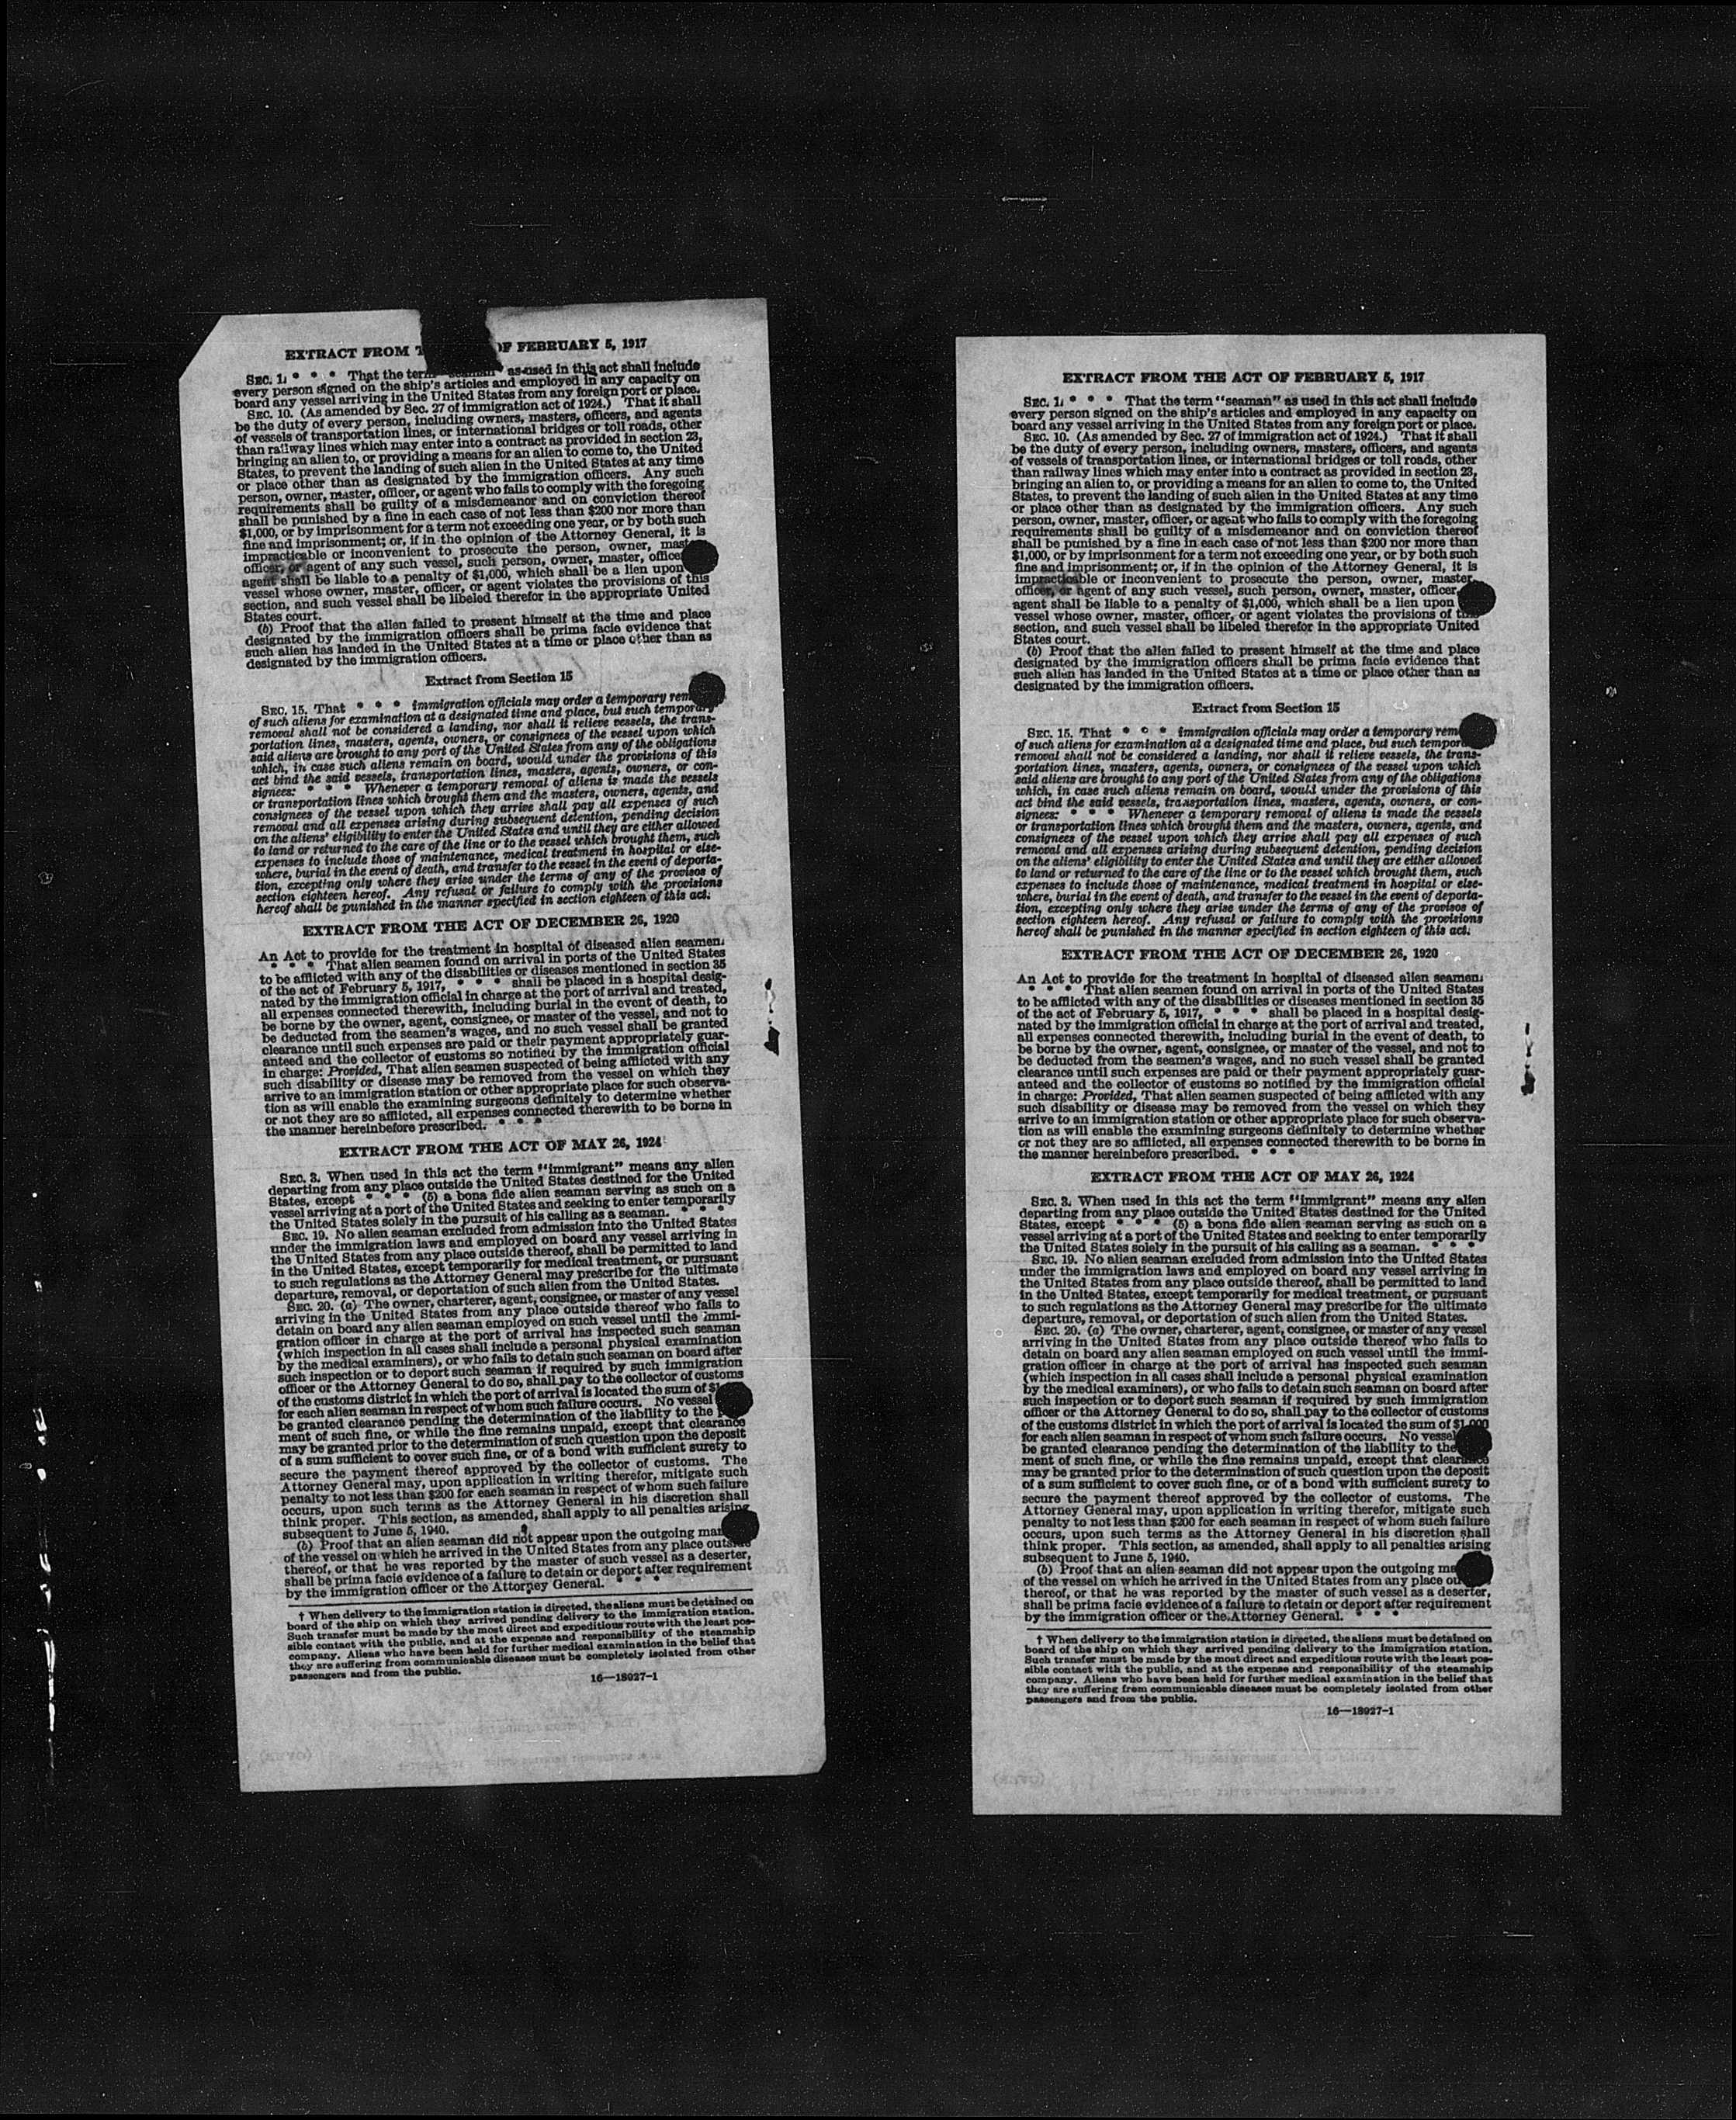 EXTRACT FROM OF FEBRUARY 5, 1917
SEC. 1. * * * That the term as used in this act shall include
every person signed on the ship's articles and employed in any capacity on
board any vessel arriving in the United States from any foreign port or place.
SEC. 10. (As amended by Sec. 27 of immigration act of 1924.) That it shall
be the duty of every person, including owners, masters, officers, and agents
of vessels of transportation lines, or international bridges or toll roads, other
than railway lines which may enter into a contract as provided in section 23,
bringing an alien to, or providing a means for an alien to come to, the United
States, to prevent the landing of such alien in the United States at any time
or place other than as designated by the immigration officers. Any such
person, owner, master, officer, or agent who fails to comply with the foregoing
requirements shall be guilty of a misdemeanor and on conviction thereof
shall be punished by a fine in each case of not less than $200 nor more than
$1,000, or by imprisonment for a term not exceeding one year, or by both such
fine and imprisonment; or, if in the opinion of the Attorney General, it is
impracticable or inconvenient to prosecute the person, owner, master
officer, or agent of any such vessel, such person, owner, master, officer
agent shall be liable to a penalty of $1,000, which shall be a lien upon
vessel whose owner, master, officer, or agent violates the provisions of this
section, and such vessel shall be libeled therefor in the appropriate United
States court.
(b) Proof that the alien failed to present himself at the time and place
designated by the immigration officers shall be prima facie evidence that
such alien has landed in the United States at a time or place other than as
designated by the immigration officers.
Extract from Section 15
SEC. 15. That * * * immigration officials may order a temporary rem
of such aliens for examination at a designated time and place, but such temporary
removal shall not be considered a landing, nor shall it relieve vessels, the trans-
portation lines, masters, agents, owners, or consignees of the vessel upon which
said aliens are brought to any port of the United States from any of the obligations
which, in case such aliens remain on board, would under the provisions of this
act bind the said vessels, transportation lines, masters, agents, owners, or con-
signees: * * * Whenever a temporary removal of aliens is made the vessels
or transportation lines which brought them and the masters, owners, agents, and
consignees of the vessel upon which they arrive shall pay all expenses of such
removal and all expenses arising during subsequent detention, pending decision
on the aliens' eligibility to enter the United States and until they are either allowed
to land or returned to the care of the line or to the vessel which brought them, such
expenses to include those of maintenance, medical treatment in hospital or else-
where, burial in the event of death, and transfer to the vessel in the event of deporta-
tion, excepting only where they arise under the terms of any of the provisos of
section eighteen hereof. Any refusal or failure to comply with the provisions
hereof shall be punished in the manner specified in section eighteen of this act.
EXTRACT FROM THE ACT OF DECEMBER 26, 1920
An Act to provide for the treatment in hospital of diseased alien seamen.
* * * That alien seamen found on arrival in ports of the United States
to be afflicted with any of the disabilities or diseases mentioned in section 35
of the act of February 5, 1917, * * * shall be placed in a hospital desig-
nated by the immigration official in charge at the port of arrival and treated,
all expenses connected therewith, including burial in the event of death, to
be borne by the owner, agent, consignee, or master of the vessel, and not to
be deducted from the seamen's wages, and no such vessel shall be granted
clearance until such expenses are paid or their payment appropriately guar-
anteed and the collector of customs so notified by the immigration official
in charge: Provided, That alien seamen suspected of being afflicted with any
such disability or disease may be removed from the vessel on which they
arrive to an immigration station or other appropriate place for such observa-
tion as will enable the examining surgeons definitely to determine whether
or not they are so afflicted, all expenses connected therewith to be borne in
the manner hereinbefore prescribed. * * *
EXTRACT FROM THE ACT OF MAY 26, 1924
SEC. 3. When used in this act the term "immigrant" means any alien
departing from any place outside the United States destined for the United
States, except * * * (5) a bona fide alien seaman serving as such on a
vessel arriving at a port of the United States and seeking to enter temporarily
the United States solely in the pursuit of his calling as a seaman. * * *
SEC. 19. No alien seaman excluded from admission into the United States
under the immigration laws and employed on board any vessel arriving in
the United States from any place outside thereof, shall be permitted to land
in the United States, except temporarily for medical treatment, or pursuant
to such regulations as the Attorney General may prescribe for the ultimate
departure, removal, or deportation of such alien from the United States.
SEC. 20. (a) The owner, charterer, agent, consignee, or master of any vessel
arriving in the United States from any place outside thereof who fails to
detain on board any alien seaman employed on such vessel until the immi-
gration officer in charge at the port of arrival has inspected such seaman
(which inspection in all cases shall include a personal physical examination
by the medical examiners), or who fails to detain such seaman on board after
such inspection or to deport such seaman if required by such immigration
officer or the Attorney General to do so, shall pay to the collector of customs
of the customs district in which the port of arrival is located the sum of
for each alien seaman in respect of whom such failure occurs. No vessel
be granted clearance pending the determination of the liability to the
ment of such fine, or while the fine remains unpaid, except that clearance
may be granted prior to the determination of such question upon the deposit
of a sum sufficient to cover such fine, or of a bond with sufficient surety to
secure the payment thereof approved by the collector of customs. The
Attorney General may, upon application in writing therefor, mitigate such
penalty to not less than $200 for each seaman in respect of whom such failure
occurs, upon such terms as the Attorney General in his discretion shall
think proper. This section, as amended, shall apply to all penalties arising
subsequent to June 5, 1940.
(b) Proof that an alien seaman did not appear upon the outgoing
of the vessel on which he arrived in the United States from any place outside
thereof, or that he was reported by the master of such vessel as a deserter,
shall be prima facie evidence of a failure to detain or deport after requirement
by the immigration officer or the Attorney General. * * *
† When delivery to the immigration station is directed, the aliens must be detained on
board of the ship on which they arrived pending delivery to the immigration station.
Such transfer must be made by the most direct and expeditious route with the least pos-
sible contact with the public, and at the expense and responsibility of the steamship
company. Aliens who have been held for further medical examination in the belief that
they are suffering from communicable diseases must be completely isolated from other
passengers and from the public.
16—18927-1
EXTRACT FROM THE ACT OF FEBRUARY 5, 1917
SEC. 1. * * * That the term "seaman" as used in this act shall include
every person signed on the ship's articles and employed in any capacity on
board any vessel arriving in the United States from any foreign port or place.
SEC. 10. (As amended by Sec. 27 of immigration act of 1924.) That it shall
be the duty of every person, including owners, masters, officers, and agents
of vessels of transportation lines, or international bridges or toll roads, other
than railway lines which may enter into a contract as provided in section 23,
bringing an alien to, or providing a means for an alien to come to, the United
States, to prevent the landing of such alien in the United States at any time
or place other than as designated by the immigration officers. Any such
person, owner, master, officer, or agent who fails to comply with the foregoing
requirements shall be guilty of a misdemeanor and on conviction thereof
shall be punished by a fine in each case of not less than $200 nor more than
$1,000, or by imprisonment for a term not exceeding one year, or by both such
fine and imprisonment; or, if in the opinion of the Attorney General, it is
impracticable or inconvenient to prosecute the person, owner, master,
officer, or agent of any such vessel, such person, owner, master, officer,
agent shall be liable to a penalty of $1,000, which shall be a lien upon
vessel whose owner, master, officer, or agent violates the provisions of this
section, and such vessel shall be libeled therefor in the appropriate United
States court.
(b) Proof that the alien failed to present himself at the time and place
designated by the immigration officers shall be prima facie evidence that
such alien has landed in the United States at a time or place other than as
designated by the immigration officers.
Extract from Section 15
SEC. 15. That * * * immigration officials may order a temporary rem
of such aliens for examination at a designated time and place, but such tempora
removal shall not be considered a landing, nor shall it relieve vessels, the trans-
portation lines, masters, agents, owners, or consignees of the vessel upon which
said aliens are brought to any port of the United States from any of the obligations
which, in case such aliens remain on board, would under the provisions of this
act bind the said vessels, transportation lines, masters, agents, owners, or con-
signees: * * * Whenever a temporary removal of aliens is made the vessels
or transportation lines which brought them and the masters, owners, agents, and
consignees of the vessel upon which they arrive shall pay all expenses of such
removal and all expenses arising during subsequent detention, pending decision
on the aliens' eligibility to enter the United States and until they are either allowed
to land or returned to the care of the line or to the vessel which brought them, such
expenses to include those of maintenance, medical treatment in hospital or else-
where, burial in the event of death, and transfer to the vessel in the event of deporta-
tion, excepting only where they arise under the terms of any of the provisos of
section eighteen hereof. Any refusal or failure to comply with the provisions
hereof shall be punished in the manner specified in section eighteen of this act.
EXTRACT FROM THE ACT OF DECEMBER 26, 1920
An Act to provide for the treatment in hospital of diseased alien seamen.
* * * That alien seamen found on arrival in ports of the United States
to be afflicted with any of the disabilities or diseases mentioned in section 35
of the act of February 5, 1917, * * * shall be placed in a hospital desig-
nated by the immigration official in charge at the port of arrival and treated,
all expenses connected therewith, including burial in the event of death, to
be borne by the owner, agent, consignee, or master of the vessel, and not to
be deducted from the seamen's wages, and no such vessel shall be granted
clearance until such expenses are paid or their payment appropriately guar-
anteed and the collector of customs so notified by the immigration official
in charge: Provided, That alien seamen suspected of being afflicted with any
such disability or disease may be removed from the vessel on which they
arrive to an immigration station or other appropriate place for such observa-
tion as will enable the examining surgeons definitely to determine whether
or not they are so afflicted, all expenses connected therewith to be borne in
the manner hereinbefore prescribed. * * *
EXTRACT FROM THE ACT OF MAY 26, 1924
SEC. 3. When used in this act the term "immigrant" means any alien
departing from any place outside the United States destined for the United
States, except * * * (5) a bona fide alien seaman serving as such on a
vessel arriving at a port of the United States and seeking to enter temporarily
the United States solely in the pursuit of his calling as a seaman. * * *
SEC. 19. No alien seaman excluded from admission into the United States
under the immigration laws and employed on board any vessel arriving in
the United States from any place outside thereof, shall be permitted to land
in the United States, except temporarily for medical treatment, or pursuant
to such regulations as the Attorney General may prescribe for the ultimate
departure, removal, or deportation of such alien from the United States.
SEC. 20. (a) The owner, charterer, agent, consignee, or master of any vessel
arriving in the United States from any place outside thereof who fails to
detain on board any alien seaman employed on such vessel until the immi-
gration officer in charge at the port of arrival has inspected such seaman
(which inspection in all cases shall include a personal physical examination
by the medical examiners), or who fails to detain such seaman on board after
such inspection or to deport such seaman if required by such immigration
officer or the Attorney General to do so, shall pay to the collector of customs
of the customs district in which the port of arrival is located the sum of $1,000
for each alien seaman in respect of whom such failure occurs. No vessel
be granted clearance pending the determination of the liability to the
ment of such fine, or while the fine remains unpaid, except that clearance
may be granted prior to the determination of such question upon the deposit
of a sum sufficient to cover such fine, or of a bond with sufficient surety to
secure the payment thereof approved by the collector of customs. The
Attorney General may, upon application in writing therefor, mitigate such
penalty to not less than $200 for each seaman in respect of whom such failure
occurs, upon such terms as the Attorney General in his discretion shall
think proper. This section, as amended, shall apply to all penalties arising
subsequent to June 5, 1940.
(b) Proof that an alien seaman did not appear upon the outgoing
of the vessel on which he arrived in the United States from any place
thereof, or that he was reported by the master of such vessel as a deserter,
shall be prima facie evidence of a failure to detain or deport after requirement
by the immigration officer or the Attorney General. * * *
† When delivery to the immigration station is directed, the aliens must be detained on
board of the ship on which they arrived pending delivery to the immigration station.
Such transfer must be made by the most direct and expeditious route with the least pos-
sible contact with the public, and at the expense and responsibility of the steamship
company. Aliens who have been held for further medical examination in the belief that
they are suffering from communicable diseases must be completely isolated from other
passengers and from the public.
16—18927-1